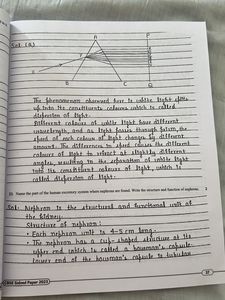 Sol. (a)
A
P
B
C
Q
The phenomenon observed here is white light splits
up into its constituents colours which is called
dispersion of light.
Different colours of white light have different
wavelength, and as light passes through prism, the
speed of each colour of light changes by different
amount. The differences in speed causes the different
colours of light to refract at slightly different
angles, resulting in the separation of white light
into its constituent colours of light, which is
called dispersion of light.
Name the part of the human excretory system where nephrons are found. Write the structure and function of nephrons. 2
Sol: Nephron is the structural and functional unit of
the kidney.
Structure of nephron:
• Each nephron unit is 4-5 cm long.
• The nephron has a cup-shaped structure at its
upper end which is called a bowman's capsule.
Lower end of the bowman's capsule is tubular
CBSE Solved Paper 2023